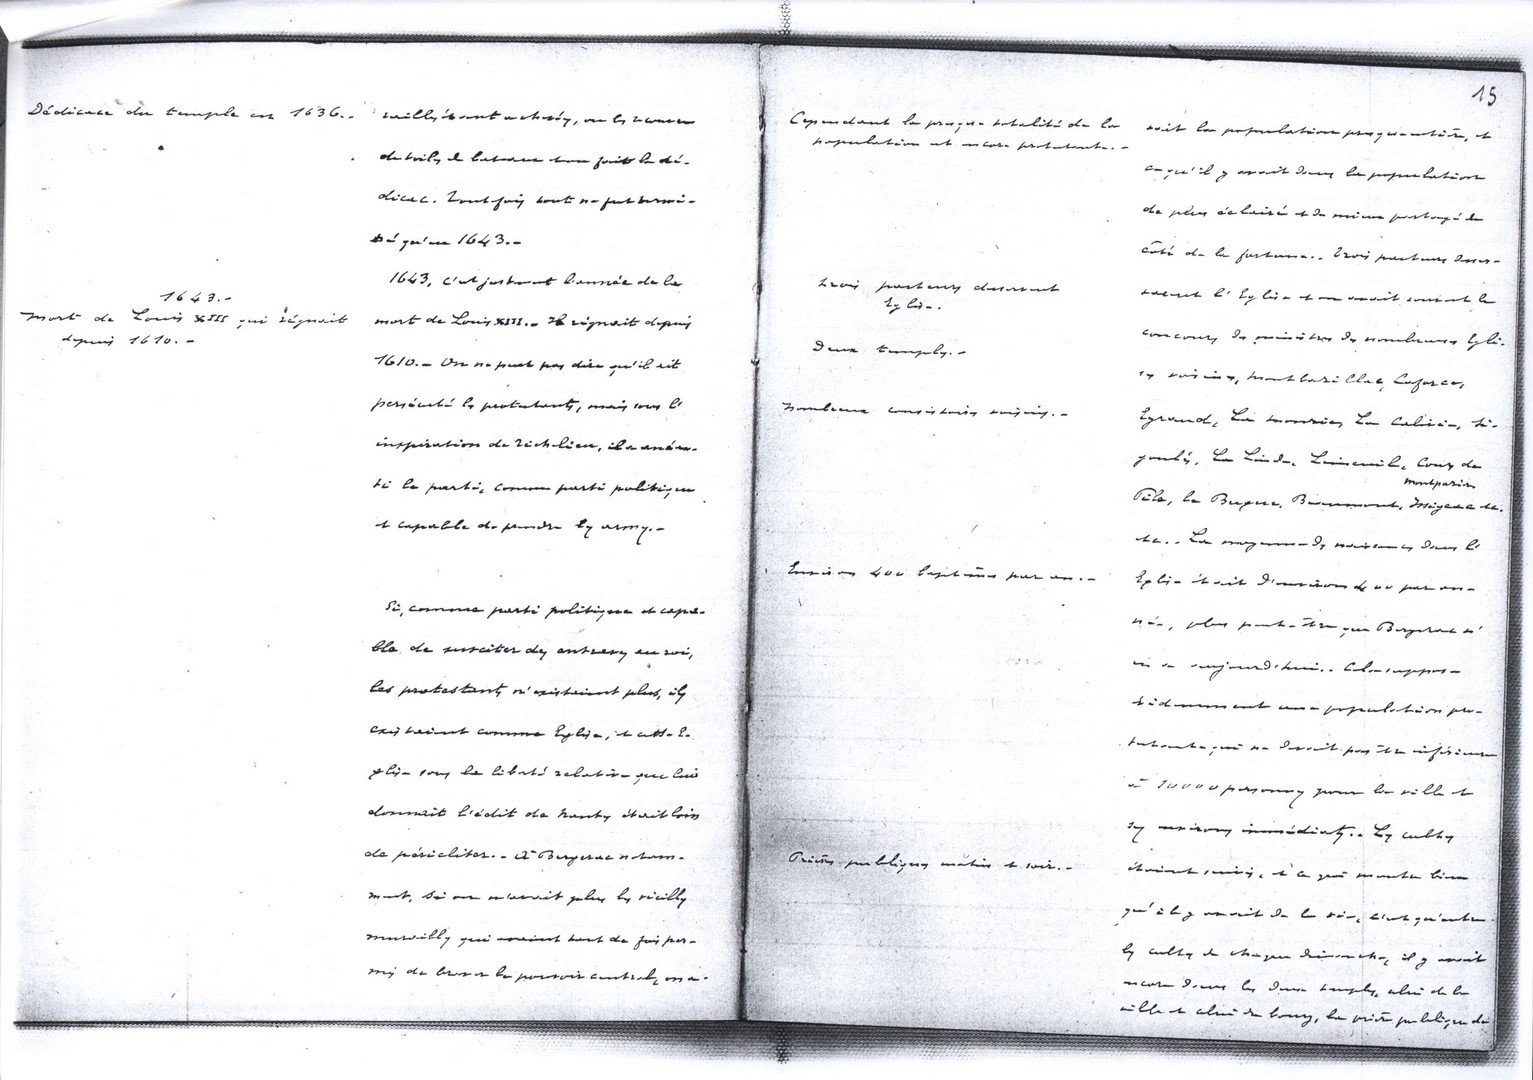 Dédicace du temple en 1636.-
de toiles de bateaux
dicace. Toutefois tout ne fut termi-
né qu'en 1643.-
1643, c'est justement l'année de la
1643.-
Mort de Louis XIII qui régnait
depuis 1610.-
mort de Louis XIII.- Il régnait depuis
1610.- On ne peut pas dire qu'il ait
persécuté les protestants, mais sous l'
inspiration de Richelieu, il a anéan-
ti le parti, comme parti politique
et capable de prendre les armes.-
Si, comme parti politique et capa-
ble de susciter des entraves au roi,
les protestants n'existaient plus, ils
existaient comme Eglise, et cette E-
glise sous la liberté relative que lui
donnait l'édit de Nantes était loin
de péricliter.- A Bergerac notam-
ment, si on n'avait plus les vieilles
murailles qui avaient tant de fois per-
mis de braver le pouvoir central, on a-
15
Cependant la presque totalité de la
population est encore protestante.-
vait la population presque entière, et
ce qu'il y avait dans la population
de plus éclairé et de mieux partagé du
côté de la fortune.- Trois pasteurs desser-
Trois pasteurs desservent
Eglise.-
vaient l'Eglise et on avait souvent le
Deux temples.-
concours des ministres des nombreuses Egli-
ses voisines, Montbazillac, Laforce,
Nombreux consistoires voisins.-
Eyraud, La Monzie, La Calevie, Si-
goulès, La Linde, Limeuil, Cours de
Montpazier
Pile, le Bugue, Beaumont, Issigeac etc.
etc.- La moyenne des naissances dans l'
Environ 400 baptêmes par an.-
Eglise était d'environ 400 par an-
née, plus peut-être que Bergerac n'
en a aujourd'hui.- Cela suppose
évidemment une population pro-
testante qui ne devait pas être inférieure
à 10000 personnes pour la ville et
ses environs immédiats.- Les cultes
Prières publiques matin et soir.-
étaient suivis, et ce qui montre bien
qu'il y avait de la vie, c'est qu'outre
les cultes de chaque dimanche, il y avait
encore dans les deux temples, celui de la
ville et celui du bourg, la prière publique du